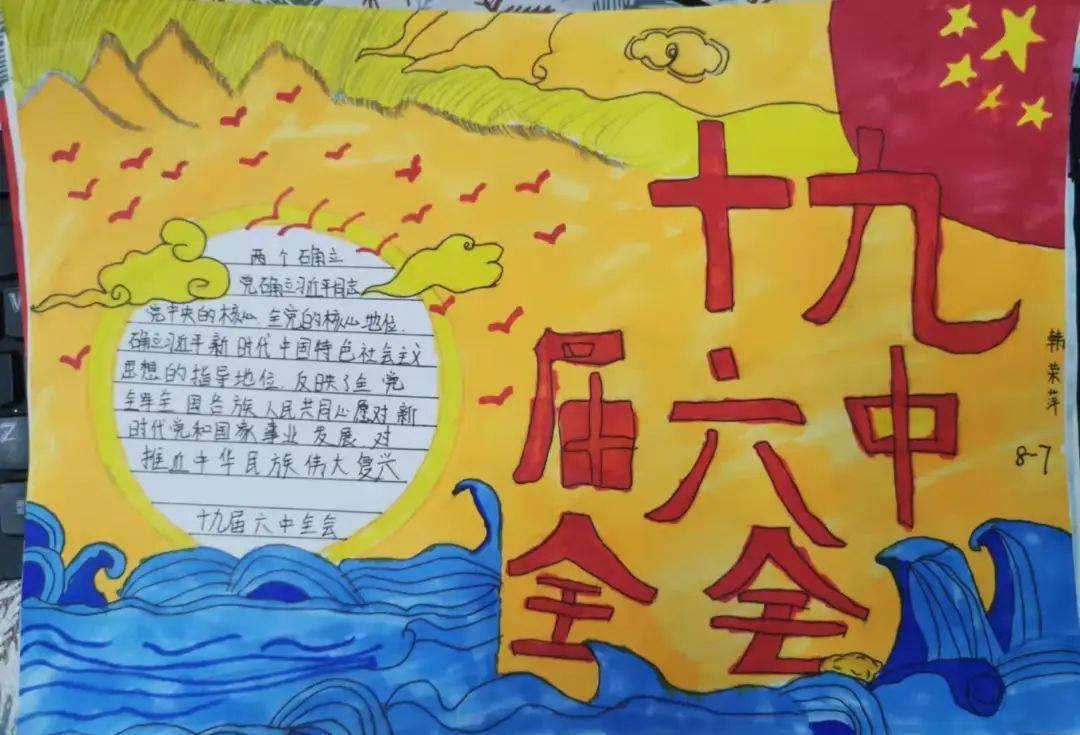 十九
届六中
全会
两个确立
党确立习近平同志
党中央的核心、全党的核心地位.
确立习近平新时代中国特色社会主义
思想的指导地位.反映了全党
全军全国各族人民共同心愿对新
时代党和国家事业发展、对
推进中华民族伟大复兴
十九届六中全会
韩荣萍
8-7
Z